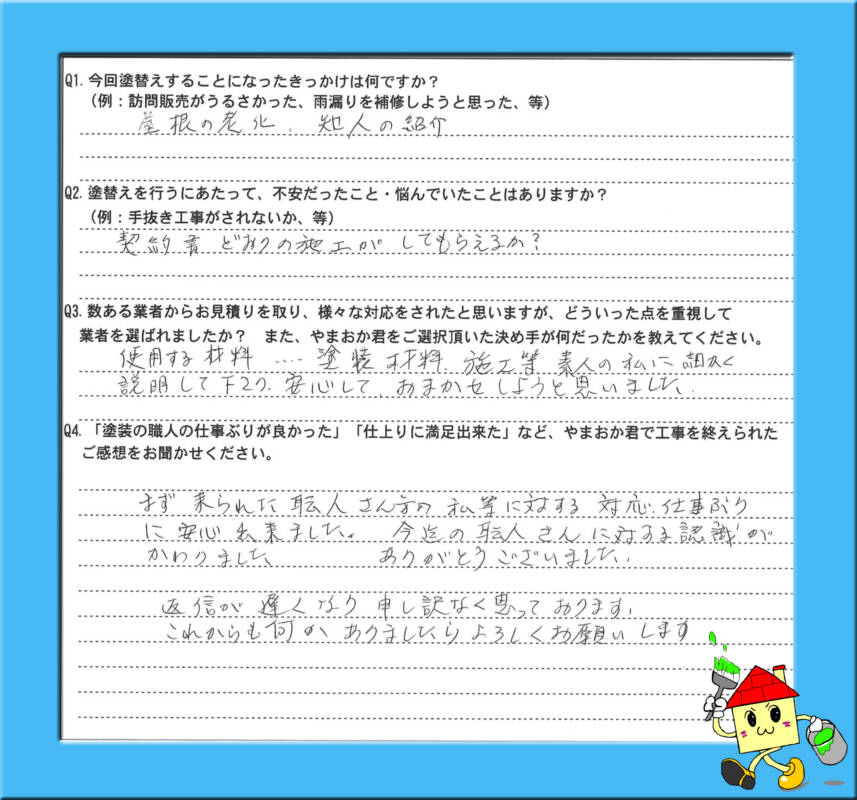 Q1. 今回塗替えすることになったきっかけは何ですか？
（例：訪問販売がうるさかった、雨漏りを補修しようと思った、等）
屋根の老化、知人の紹介
Q2. 塗替えを行うにあたって、不安だったこと・悩んでいたことはありますか？
（例：手抜き工事がされないか、等）
契約書どおりの施工がしてもらえるか？
Q3. 数ある業者からお見積りを取り、様々な対応をされたと思いますが、どういった点を重視して
業者を選ばれましたか？　また、やまおか君をご選択頂いた決め手が何だったかを教えてください。
使用する材料 ‥‥ 塗装材料 施工等 素人の私に細かく
説明して下さり、安心して、おまかせしようと思いました。
Q4. 「塗装の職人の仕事ぶりが良かった」「仕上りに満足出来た」など、やまおか君で工事を終えられた
ご感想をお聞かせください。
まず来られた職人さん方の私等に対する対応、仕事ぶり
に安心出来ました。 今迄の職人さんに対する認識が
かわりました ありがとうございました。
返信が遅くなり申し訳なく思っております。
これからも何かありましたらよろしくお願いします